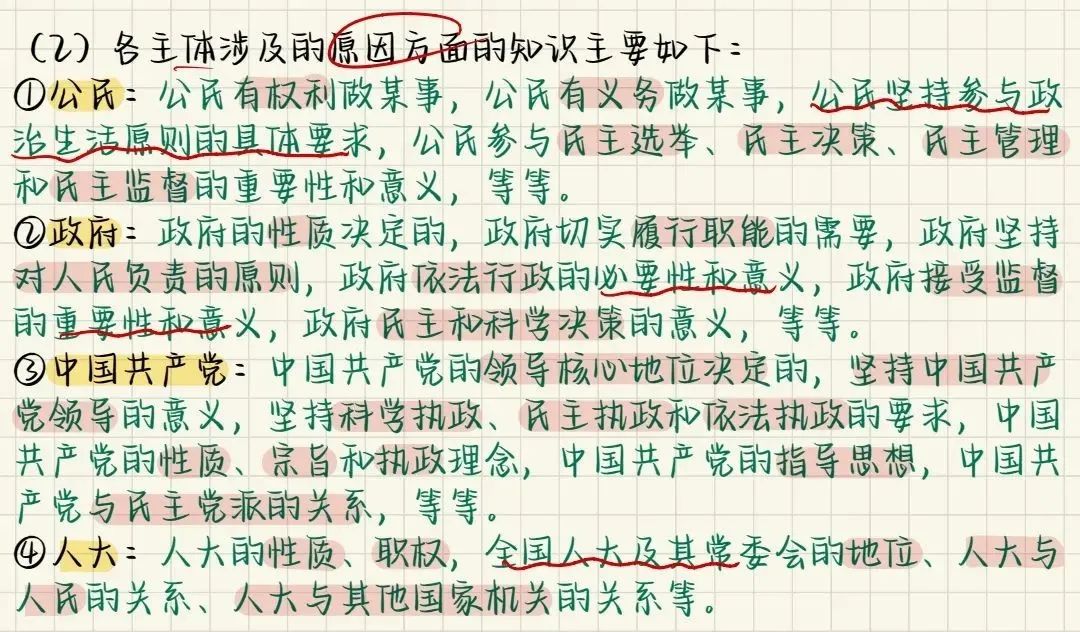 （2）各主体涉及的原因方面的知识主要如下：
①公民：公民有权利做某事，公民有义务做某事，公民坚持参与政
治生活原则的具体要求，公民参与民主选举、民主决策、民主管理
和民主监督的重要性和意义，等等。
②政府：政府的性质决定的，政府切实履行职能的需要，政府坚持
对人民负责的原则，政府依法行政的必要性和意义，政府接受监督
的重要性和意义，政府民主和科学决策的意义，等等。
③中国共产党：中国共产党的领导核心地位决定的，坚持中国共产
党领导的意义，坚持科学执政、民主执政和依法执政的要求，中国
共产党的性质、宗旨和执政理念，中国共产党的指导思想，中国共
产党与民主党派的关系，等等。
④人大：人大的性质、职权，全国人大及其常委会的地位、人大与
人民的关系、人大与其他国家机关的关系等。